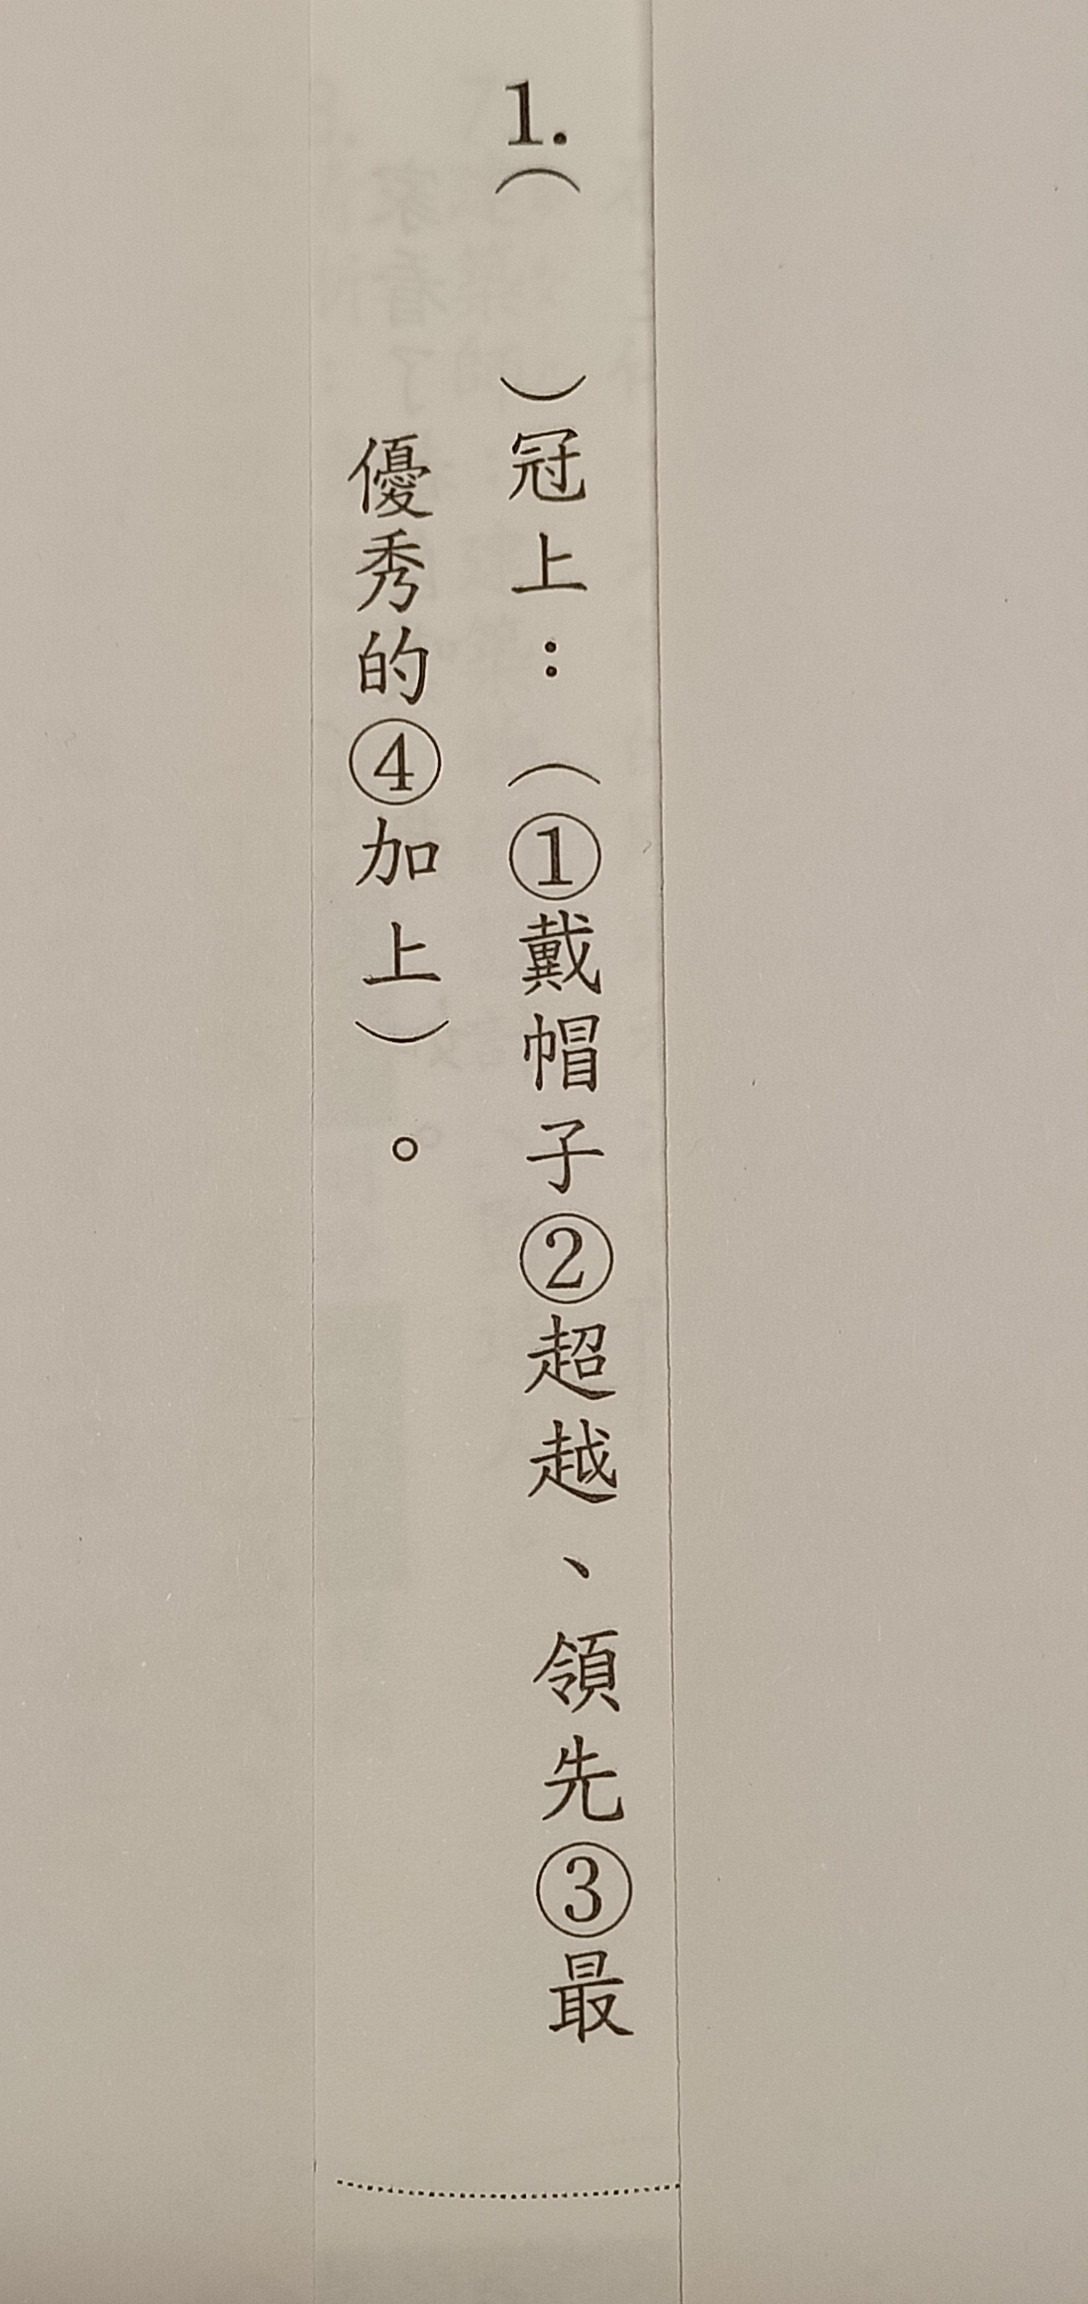 1.（　　）冠上：（①戴帽子②超越、領先③最
優秀的④加上）。